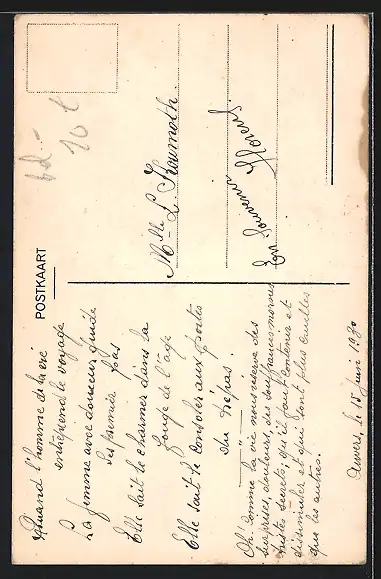 POSTKAART
Quand l'homme de la vie
entreprend le voyage
La femme avec douceur guide
ses premier pas
Elle sait le charmer dans la
fougue de l'age
Elle sait le consoler aux portes
du trépas.
Oh! comme la vie nous réserve des
surprises, douleurs, des souffrances
tristes secrets, qu'il faut contenir et
dissimuler et qui sont plus cruelles
que les autres.
Anvers, le 15 Juin 1930
Mlle L.
En souvenir